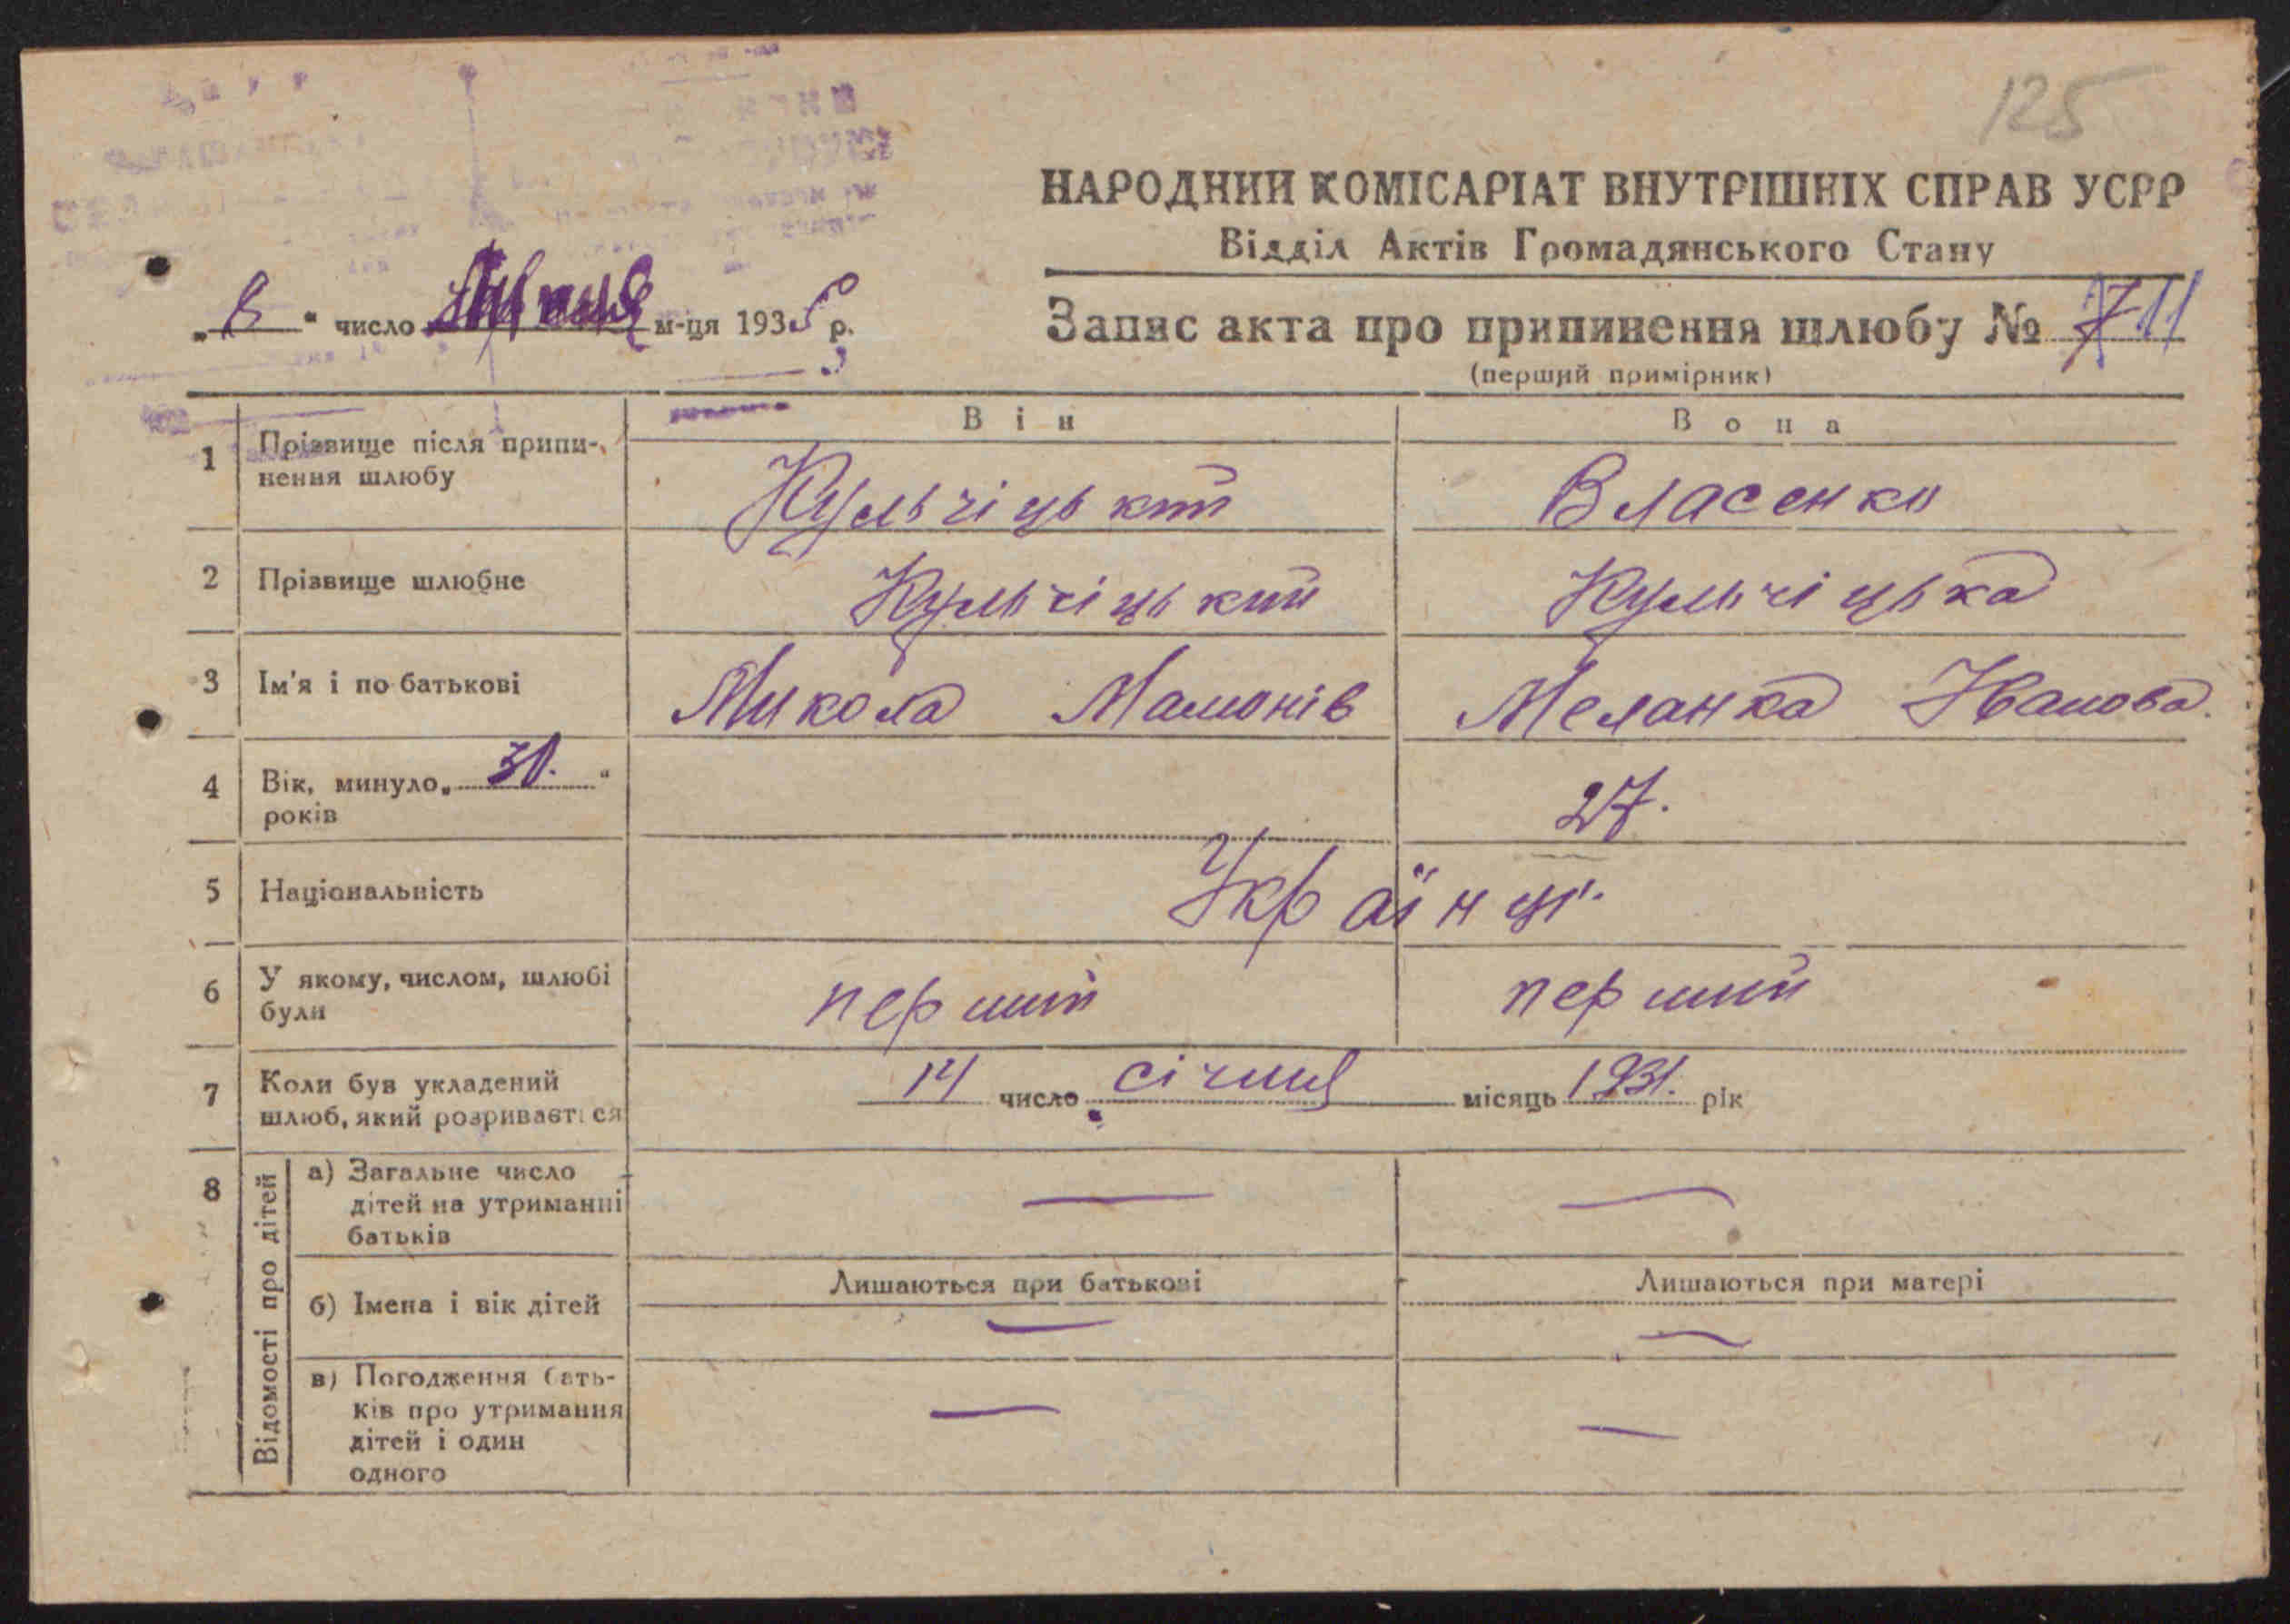 125
НАРОДНИЙ КОМІСАРІАТ ВНУТРІШНІХ СПРАВ УСРР
Відділ Актів Громадянського Стану
„8“ число м-ця 1935 р.
Запис акта про припинення шлюбу № 711
(перший примірник)
Він Вона
1 Прізвище після припи-
нення шлюбу
Кульчіцький Власенко
2 Прізвище шлюбне Кульчіцький Кульчіцька
3 Ім'я і по батькові Микола Мамонів Меланка Іванова
4 Вік, минуло „30.“
років
27.
5 Національність Українці.
6 У якому, числом, шлюбі
були
перший перший
7 Коли був укладений
шлюб, який розривається
14 число січня місяць 1931. рік
8 Відомості про дітей
а) Загальне число
дітей на утриманні
батьків
— —
б) Імена і вік дітей
Лишаються при батькові Лишаються при матері
— —
в) Погодження бать-
ків про утримання
дітей і один
одного
— —